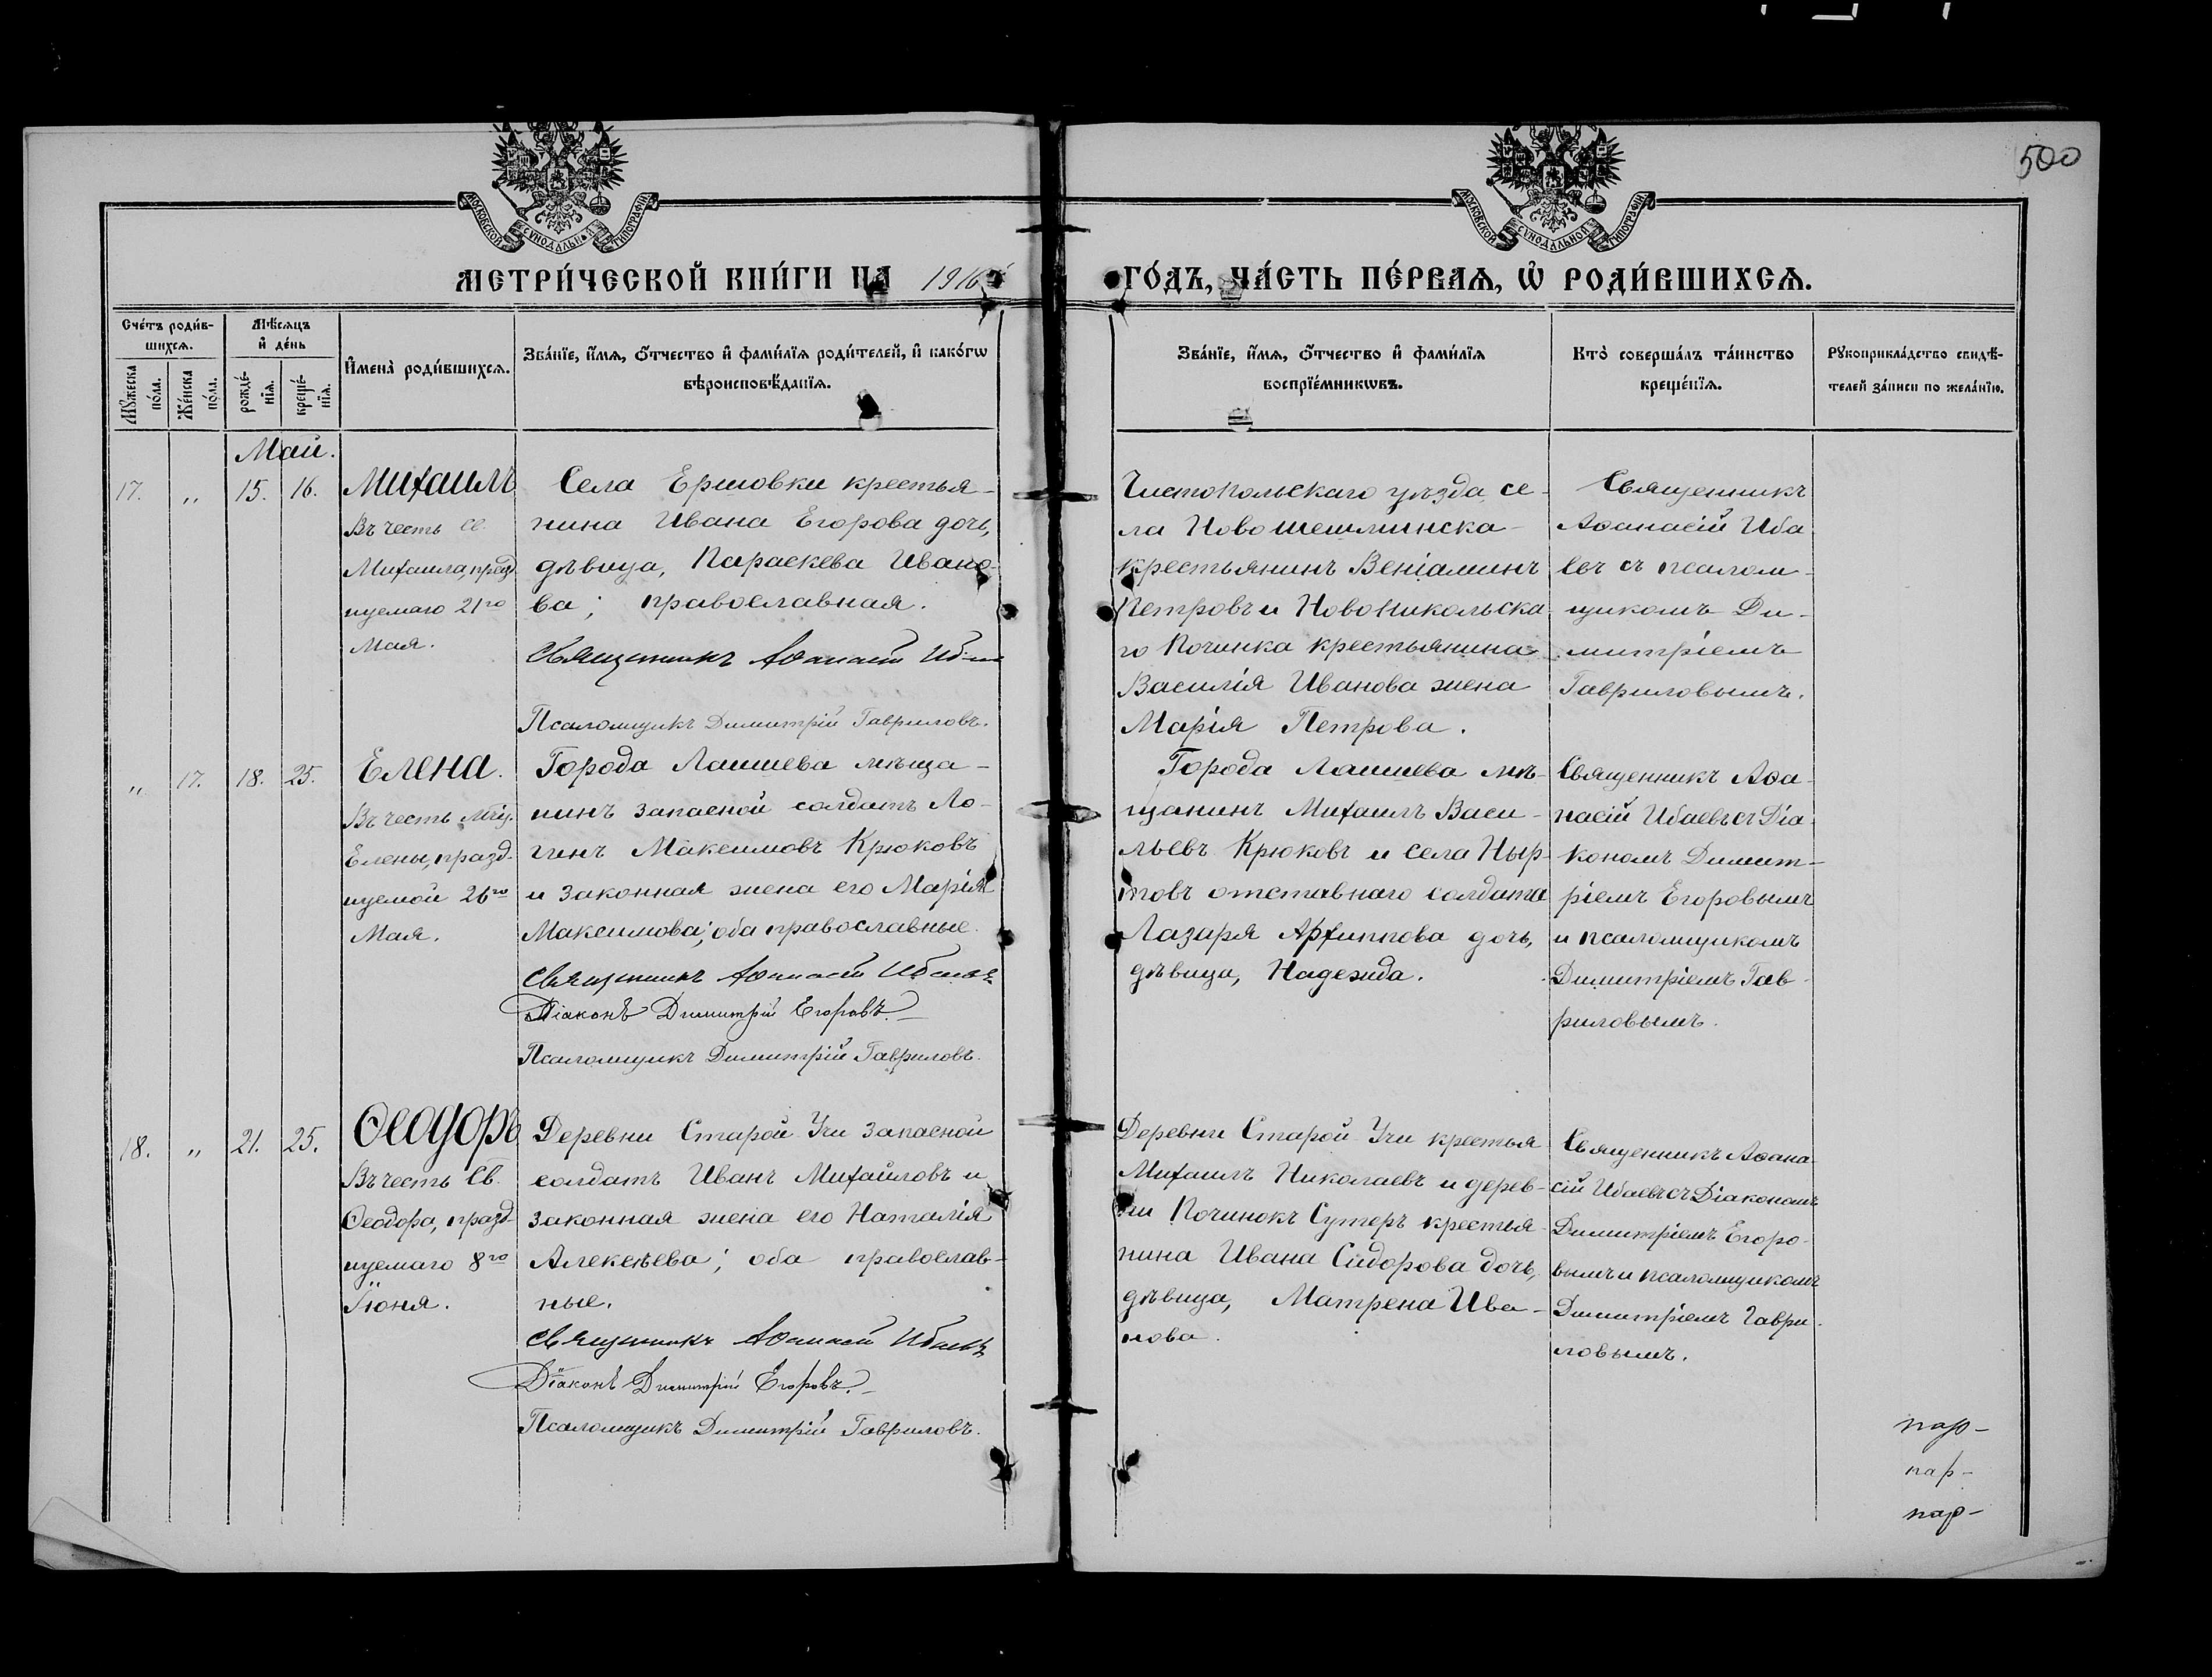 500
МОСКОВСКОЙ СѴНОДАЛЬНОЙ ТИПОГРАФІИ
МОСКОВСКОЙ СѴНОДАЛЬНОЙ ТИПОГРАФІИ
МЕТРИ́ЧЕСКОЙ КНИ́ГИ НА 1916
ГО́ДЪ, ЧА́СТЬ ПЕ́РВАѦ, Ѡ҆ РОДИ́ВШИХСѦ.
Сче́тъ роди́в-
шихсѧ.
Мꙋжеска по́ла.
Же́нска по́ла.
Мѣ́сѧцъ
и҆ де́нь
рожде́-
нїѧ.
креще́-
нїѧ.
И҆мена̀ роди́вшихсѧ.
Зва́нїе, и҆́мѧ, ѻ҆́тчество и҆ фами́лїѧ роди́телей, и҆ како́гѡ
вѣроисповѣ́данїѧ.
Зва́нїе, и҆́мѧ, ѻ҆́тчество и҆ фами́лїѧ
воспрїе́мникѡвъ.
Кто̀ соверша́лъ та́инство
креще́нїѧ.
Рꙋкоприкла́дство свидѣ́-
телей за́писи по жела́нїю.
Май.
17. „ 15. 16.
Михаилъ
Въ честь Св.
Михаила, празд-
нуемаго 21го
Мая.
Села Ершовки крестья-
нина Ивана Егорова дочь,
дѣвица, Параскева Ивано-
ва; православная.
Священникъ Аѳанасій
Псаломщикъ Димитрій Гавриловъ.
Чистопольскаго уѣзда, се-
ла Новошешминска
крестьянинъ Веніаминъ
Петровъ и Новоникольска-
го Починка крестьянина
Василія Иванова жена
Марія Петрова.
Священникъ
Аѳанасій Иба
евъ съ псалом-
щикомъ Ди-
митріемъ
Гавриловымъ.
„ 17. 18. 25.
Елена.
Въ честь Мчц.
Елены, празд-
нуемой 26го
Мая.
Города Лаишева мѣща-
нинъ запасной солдатъ Ло-
гинъ Максимовъ Крюковъ
и законная жена его Марія
Максимова; оба православные.
Священникъ Аѳанасій Ибаевъ
Діаконъ Димитрій Егоровъ.
Псаломщикъ Димитрій Гавриловъ.
Города Лаишева мѣ-
щанинъ Михаилъ Васи-
льевъ Крюковъ и села Ныр-
товъ отставнаго солдата
Лазаря Архиппова дочь,
дѣвица, Надежда.
Священникъ Аѳа-
насій Ибаевъ съ Діа-
кономъ Димит-
ріемъ Егоровымъ
и псаломщикомъ
Димитріемъ Гав-
риловымъ.
18. „ 21. 25.
Ѳеодоръ
Въ честь Св.
Ѳеодора, празд-
нуемаго 8го
Іюня.
Деревни Старой Учи запасной
солдатъ Иванъ Михайловъ и
законная жена его Наталія
Алексѣева; оба православ-
ные.
Священникъ Аѳанасій Ибаевъ
Діаконъ Димитрій Егоровъ.
Псаломщикъ Димитрій Гавриловъ.
Деревни Старой Учи крестья
Михаилъ Николаевъ и дерев-
ни Починокъ Сутеръ крестья-
нина Ивана Сидорова дочь,
дѣвица, Матрена Ива-
нова.
Священникъ Аѳана-
сій Ибаевъ съ Діакономъ
Димитріемъ Егоро-
вымъ и псаломщикомъ
Димитріемъ Гаври-
ловымъ.
пар-
пар-
пар-